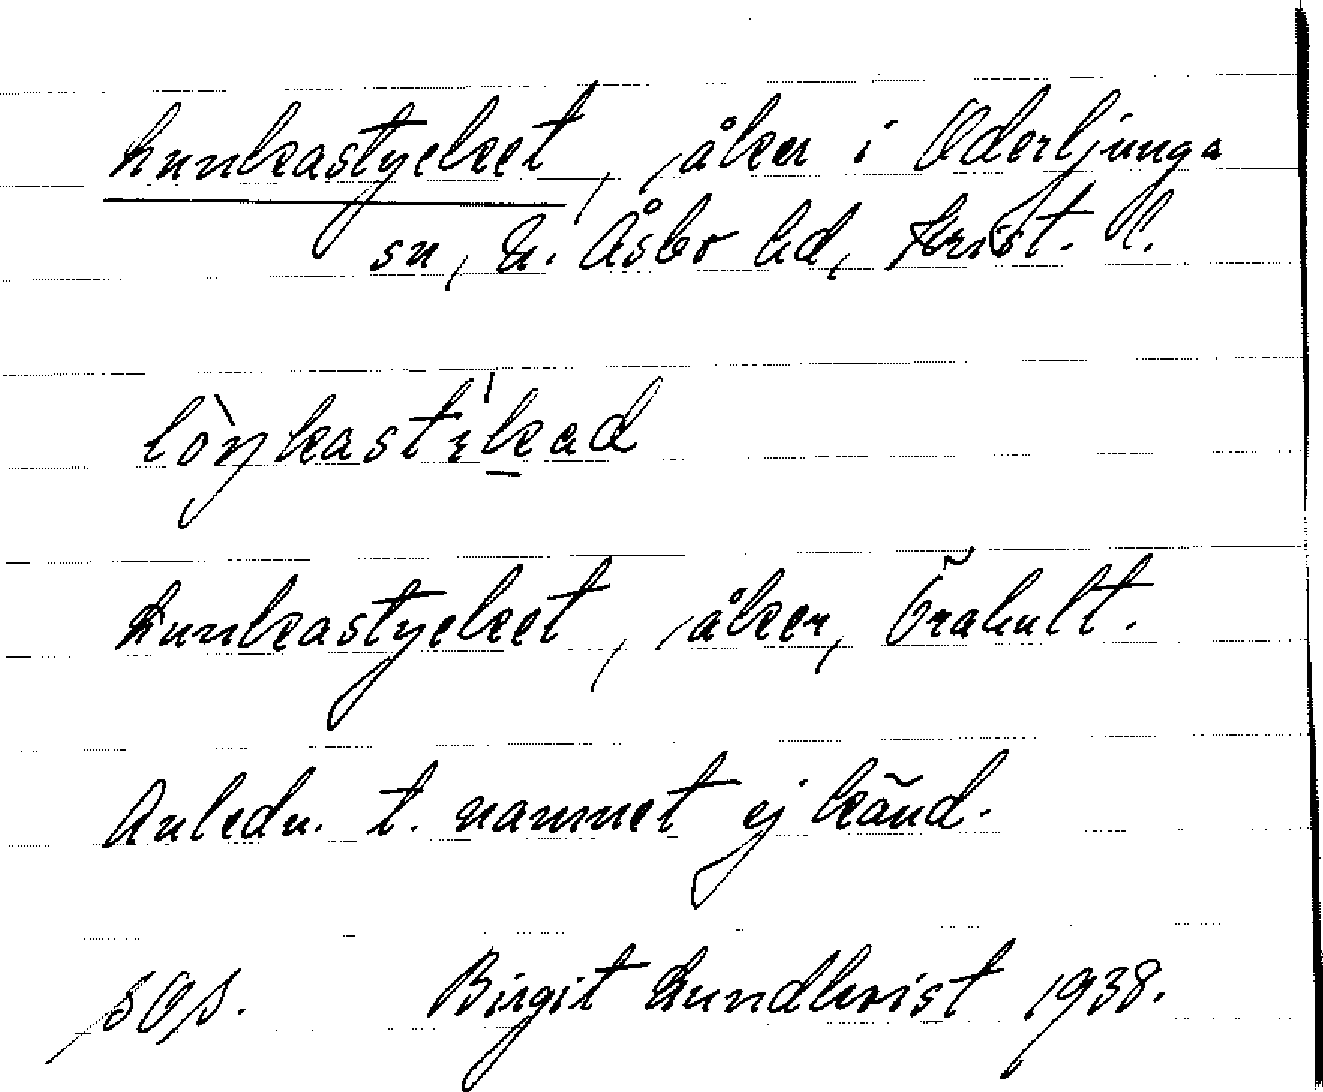 Lunkastycket, åker i Oderljunga
sn, N. Åsbo hd, Krist. l.
lòŋkastɪkad
Lunkastycket, åker, Örahult.
Anledn. t. namnet ej känd.
SOS. Birgit Lundkvist 1938.